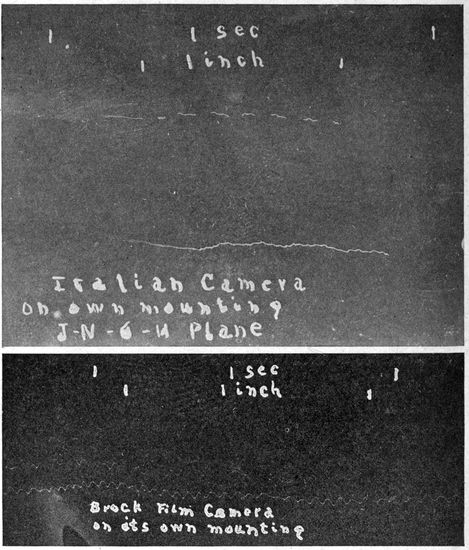 1 sec
1 inch
Italian Camera
on own mounting
J-N-6-H Plane
1 sec
1 inch
Brock Film Camera
on its own mounting